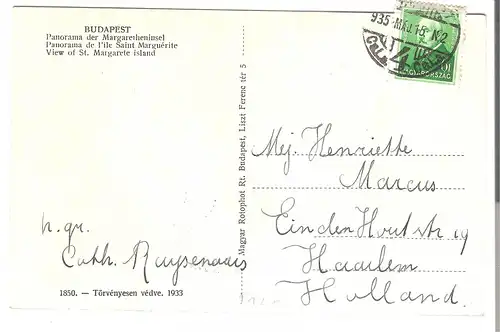 BUDAPEST
Panorama der Margaretheninsel
Panorama de l'ile Saint Marguérite
View of St. Margarete island
935 MÁJ. 15. N2
MAGYARORSZÁG
Magyar Rotophot Rt. Budapest, Liszt Ferenc tér 5
Mej. Henriette
Marcus
Einden Houtstr 19
Haarlem
Holland.
h. gr.
Cath. Ruysenaars
1850. — Törvényesen védve. 1933